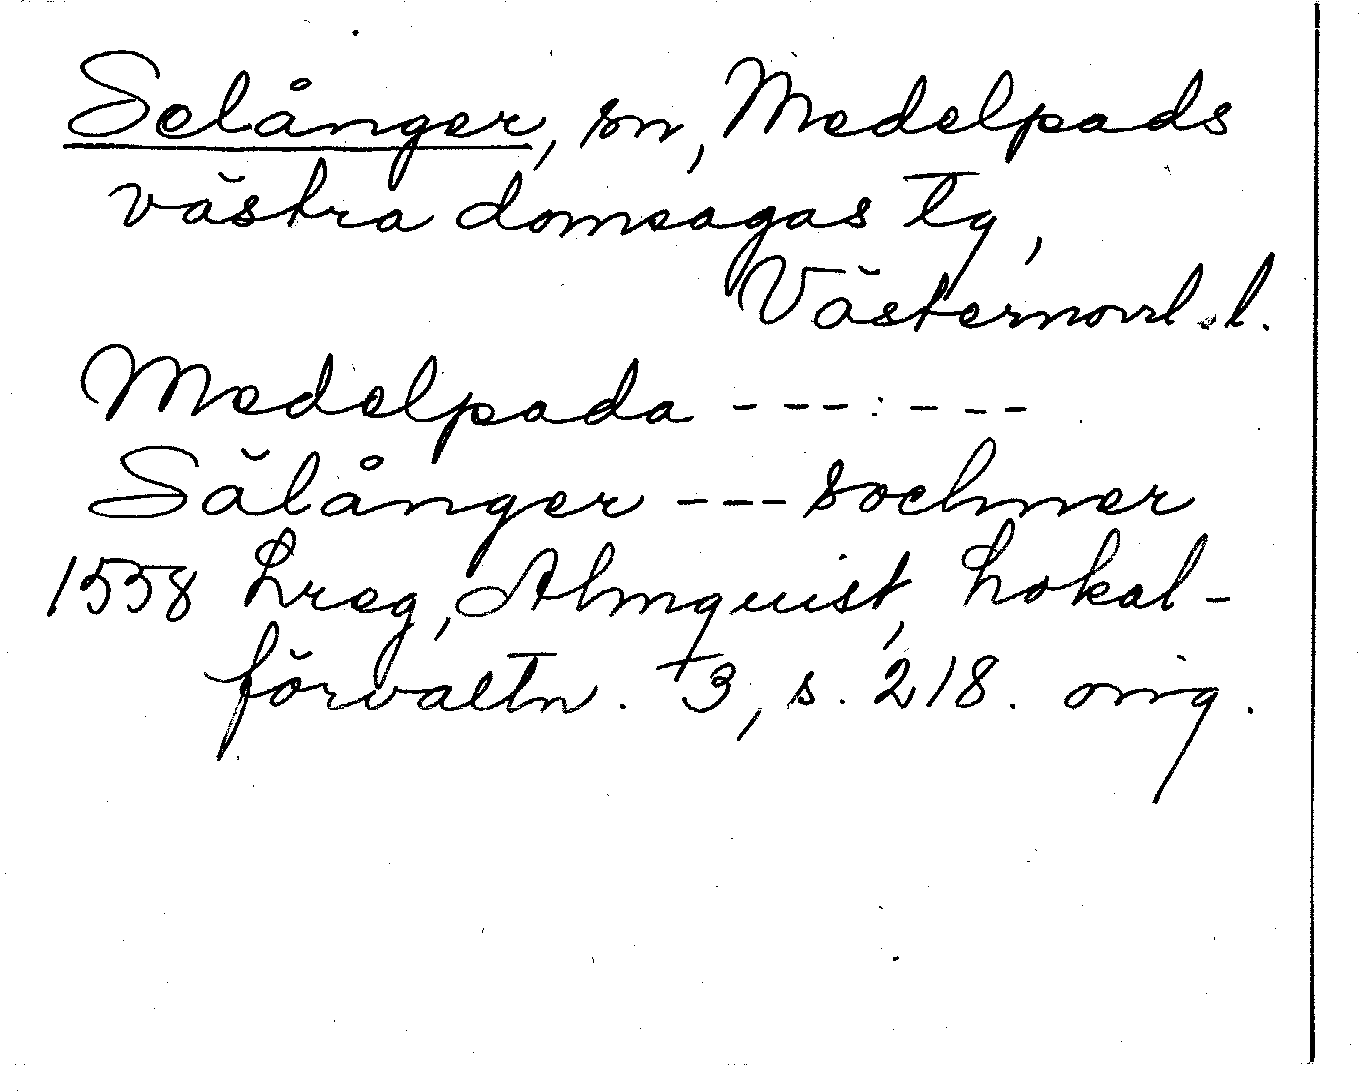 Selånger, sn, Medelpads
västra domsagas tg,
Västernorrl. l.
Medelpada ---:---
Sälånger --- sochner
1558 Lreg, Almquist, Lokal-
förvaltn. 3, s. 218. orig.